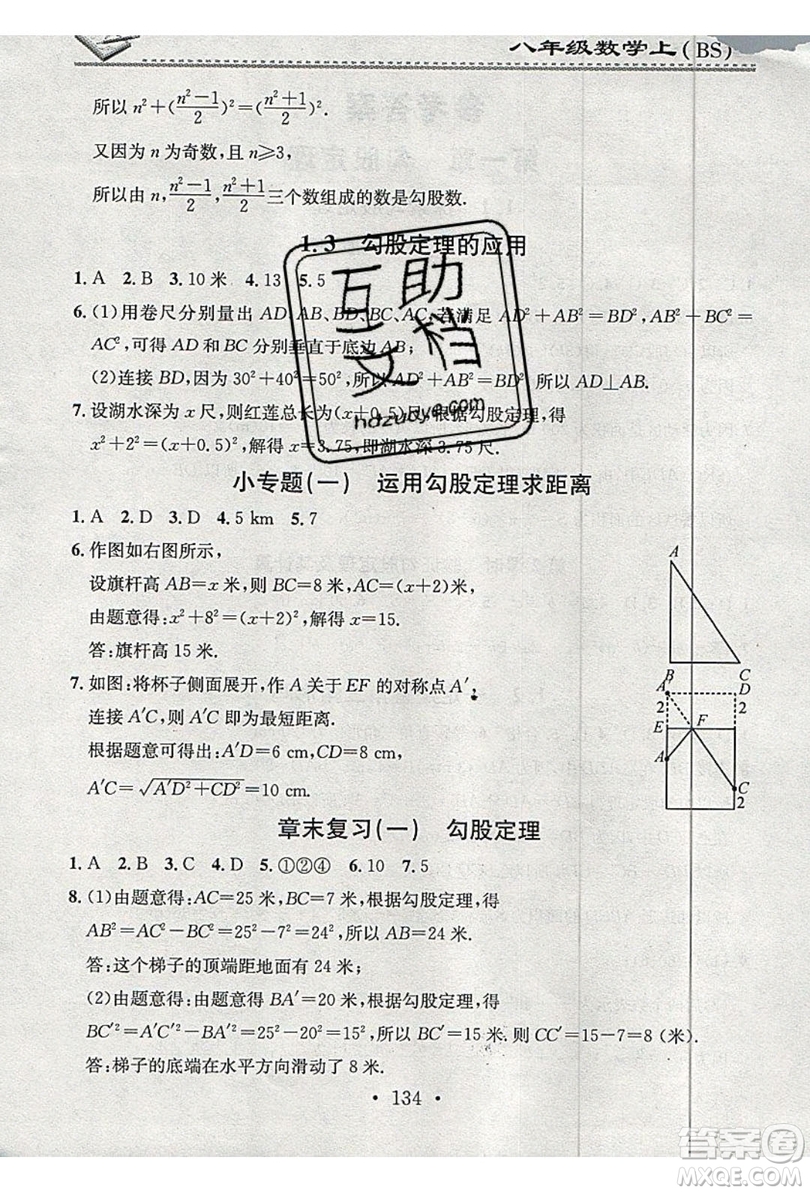 八年级数学上(BS)
所以 n²+(n²−1/2)²=(n²+1/2)².
又因为 n 为奇数,且 n⩾3,
所以由 n, n²−1/2, n²+1/2 三个数组成的数是勾股数.
1.3 勾股定理的应用
1.A 2.B 3.10 米 4.13 5.5
6.(1)用卷尺分别量出 AD,AB,BD,BC,AC,若满足 AD²+AB²=BD², AB²+BC²=
AC²,可得 AD 和 BC 分别垂直于底边 AB;
(2)连接 BD,因为 30²+40²=50²,所以 AD²+AB²=BD²,所以 AD⊥AB.
7.设湖水深为 x 尺,则红莲总长为(x+0.5)尺,根据勾股定理,得
x²+2²=(x+0.5)²,解得 x=3.75,即湖水深 3.75 尺.
小专题(一) 运用勾股定理求距离
1.A 2.D 3.D 4.5 km 5.7
6.作图如右图所示,
设旗杆高 AB=x 米,则 BC=8 米,AC=(x+2)米,
由题意得:x²+8²=(x+2)²,解得 x=15.
答:旗杆高 15 米.
A
B
C
7.如图:将杯子侧面展开,作 A 关于 EF 的对称点 A′,
连接 A′C,则 A′C 即为最短距离.
根据题意可得出:A′D=6 cm,CD=8 cm,
A′C=√A′D²+CD²=10 cm.
A
D
2
2
E
F
A
C
2
章末复习(一) 勾股定理
1.A 2.B 3.C 4.D 5.①②④ 6.10 7.5
8.(1)由题意得:AC=25 米,BC=7 米,根据勾股定理,得
AB²=AC²−BC²=25²−7²=24²,所以 AB=24 米.
答:这个梯子的顶端距地面有 24 米;
(2)由题意得:BA′=20 米,根据勾股定理,得
BC′²=A′C′²−BA′²=25²−20²=15²,所以 BC′=15 米. 则 CC′=15−7=8 (米).
答:梯子的底端在水平方向滑动了 8 米.
• 134 •
互助文档
hdzuoye.com
答案圈
MXQE.COM